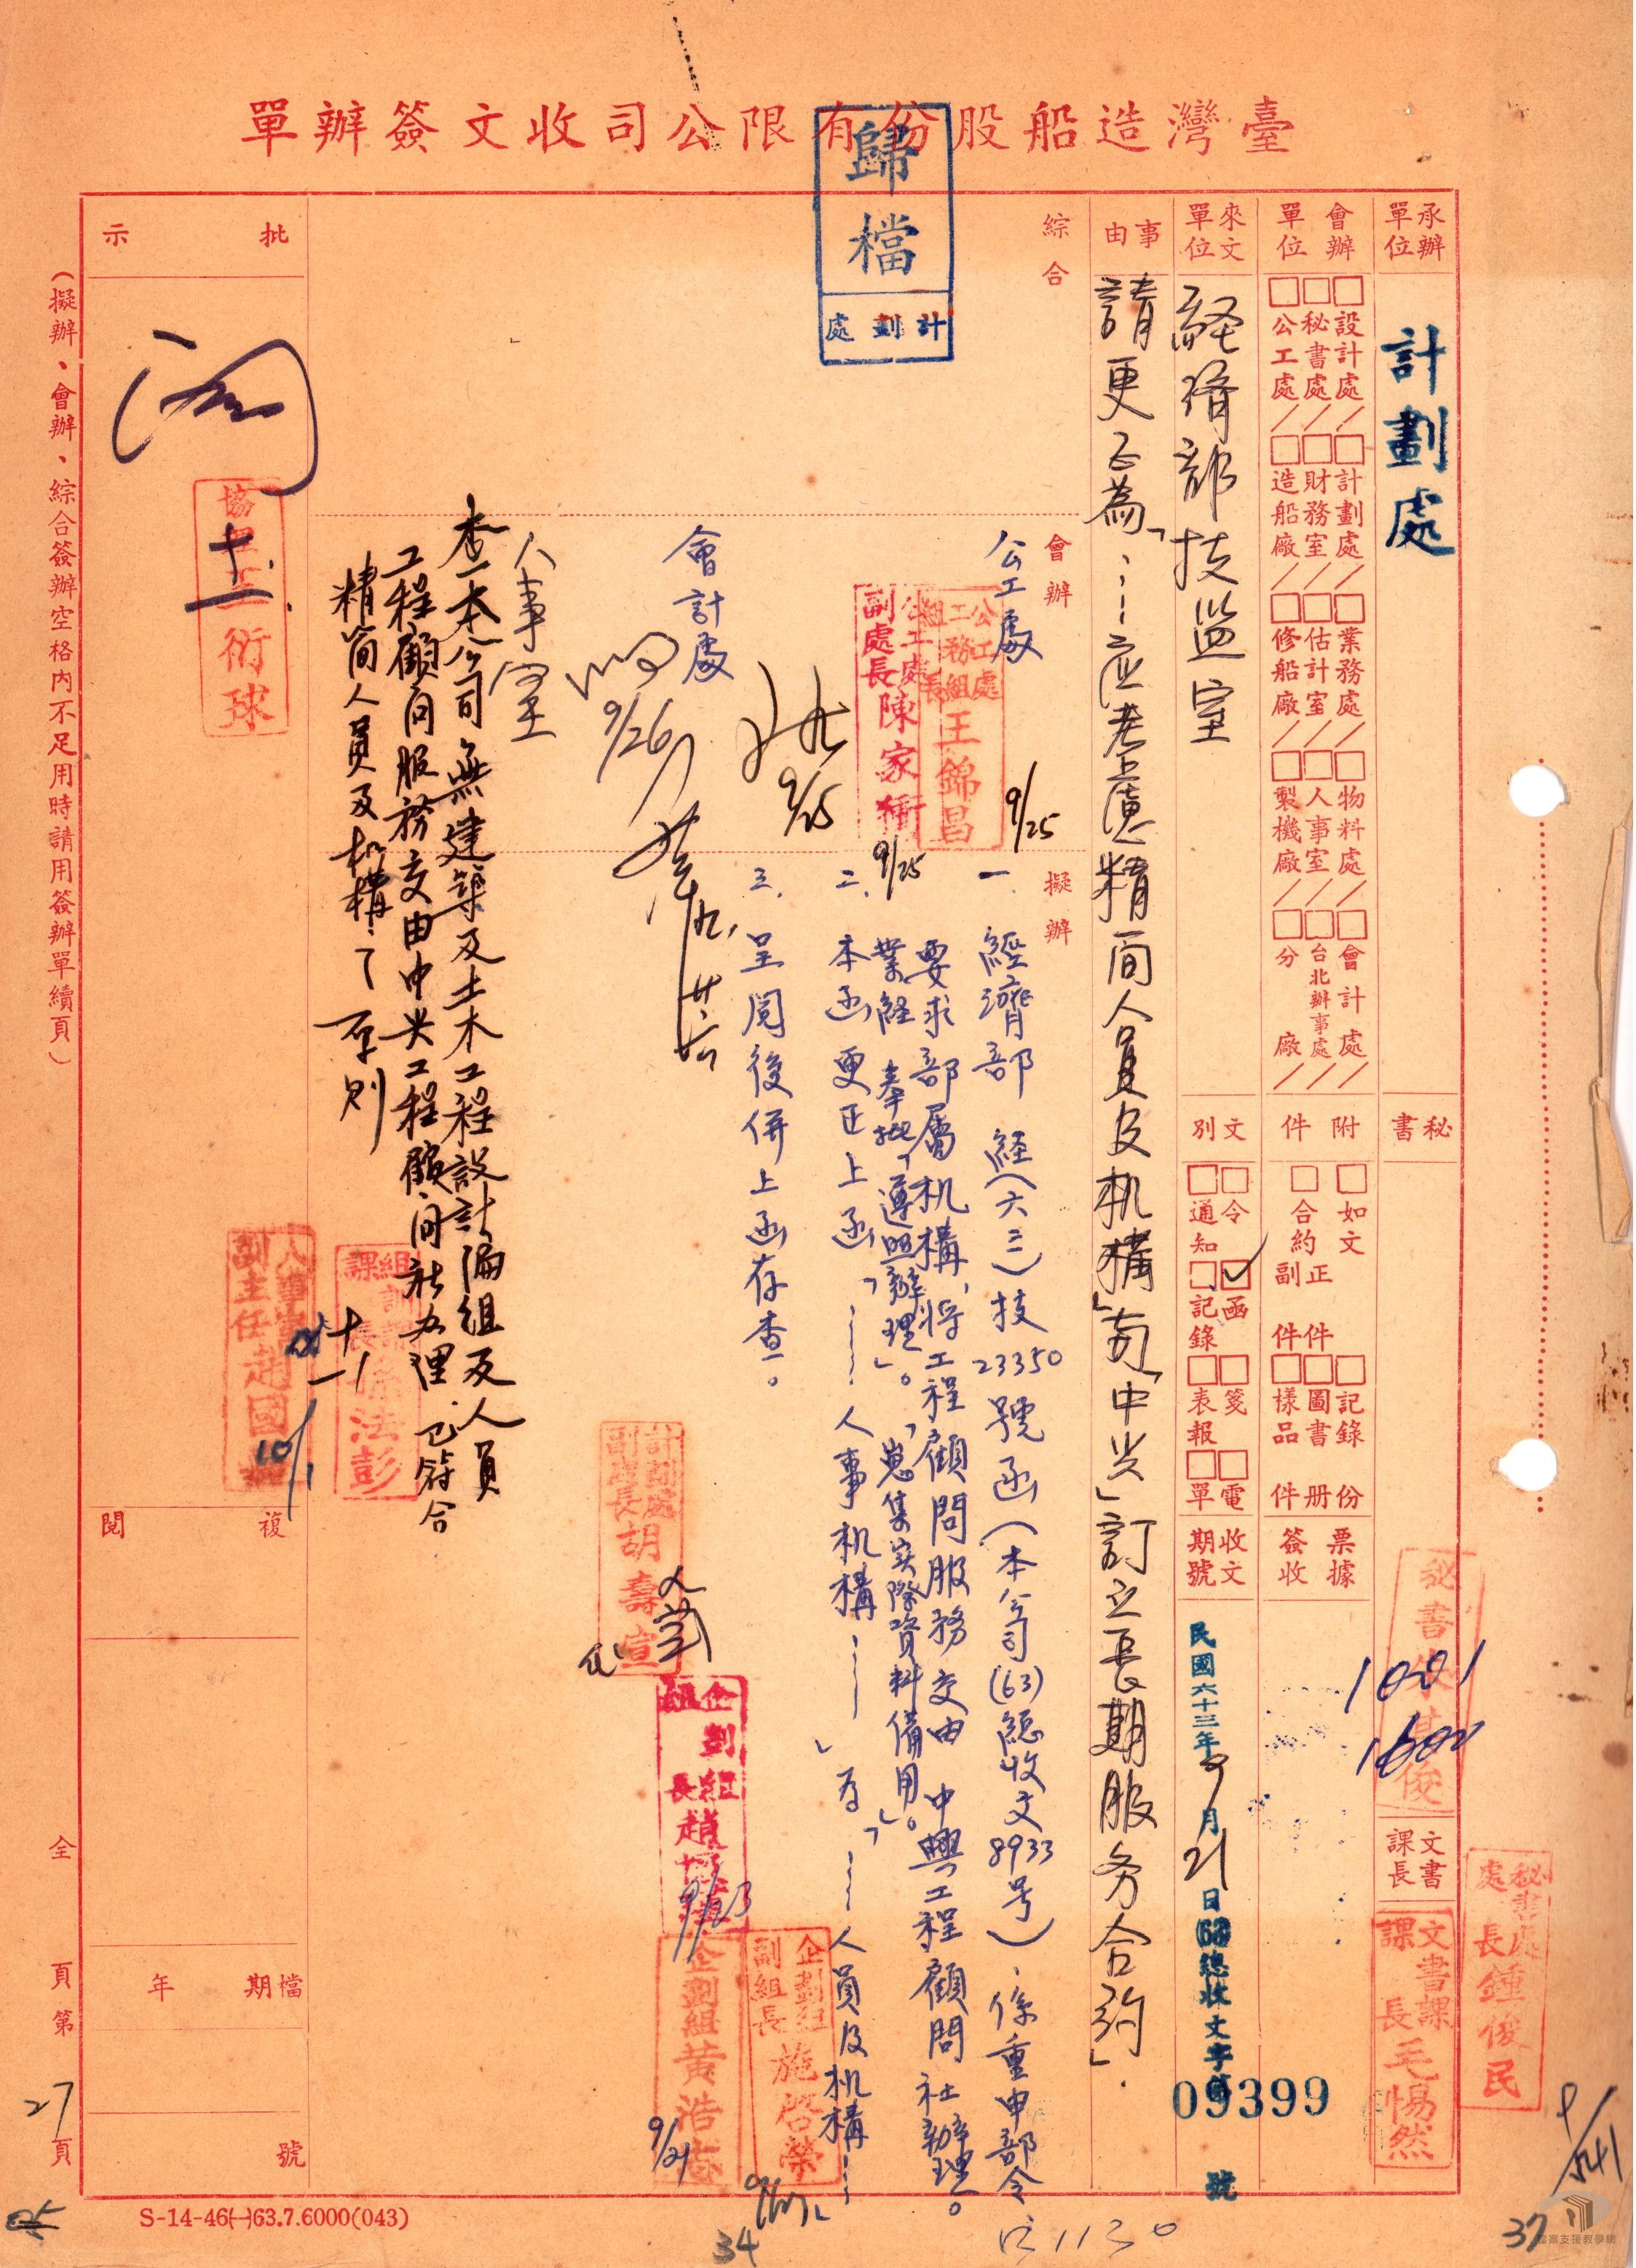 臺灣造船股份有限公司收文簽辦單
歸檔
計劃處
承辦單位
計劃處
秘書
文書課長
會辦單位
□設計處／□計劃處／□業務處／□物料處／□會計處／
□秘書處／□財務室／□估計室／□人事室／□台北辦事處／
□公工處／□造船廠／□修船廠／□製機廠／□分廠／
附件
□如文
□合約正件副件
□記錄份
□圖書冊
□樣品件
票據簽收
來文單位
經濟部技監室
文別
□令□函□箋□電
□通知□記錄□表報□單
收文期號
民國六十三年9月21日
(63)總收文字第
09399
號
事由
請更正為「……应考慮精简人員及机構」, 「中兴」訂立長期服务合約」.
綜合
會辦
公工處
公工處二組業務組長王錦昌
9/25
公工處副處長陳家衛
9/25
9/25
會計處
9/26
人事室
查本公司無建築及土木工程設計編組及人員
工程顧问服務交由中兴工程顧问社办理.已符合
精简人員及机構之原则
擬辦
一.經濟部 經(六三)技23350號函(本公司(63)總收文8933号)、係重申部令
要求部屬机構,將工程顧問服務交由中興工程顧問社辦理。
業經奉批「遵照辦理」。「蒐集实際資料備用」。
二.本函更正上函「……人事机構……」為「……人員及机構……」
三.呈閱後併上函存查。
計劃處副處長胡壽宣
企劃組組長趙
9/23
企劃組黃浩志
9/21
企劃組副組長施啓榮
組訓課課長徐法彭
人事室副主任趙國
10/1
批示
協理王衍球
複閱
檔期 年
號
秘書處處長鍾俊民
文書課課長毛惕然
1001
(擬辦、會辦、綜合簽辦空格內不足用時請用簽辦單續頁)
全 頁第27頁
S-14-46(一)63.7.6000(043)
34
37
檔案支援教學網